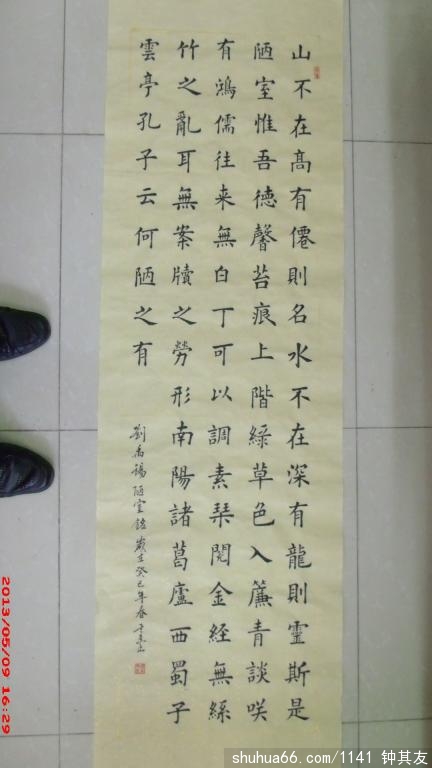 山不在髙有僊則名水不在深有龍則靈斯是
陋室惟吾徳馨苔痕上階綠草色入簾青談咲
有鴻儒往来無白丁可以調素琹閲金經無絲
竹之亂耳無案牘之勞形南陽諸葛廬西蜀子
雲亭孔子云何陋之有
劉禹錫陋室銘歲在癸巳年春
2013/05/09 16:29
shuhua66.com/1141 钟其友